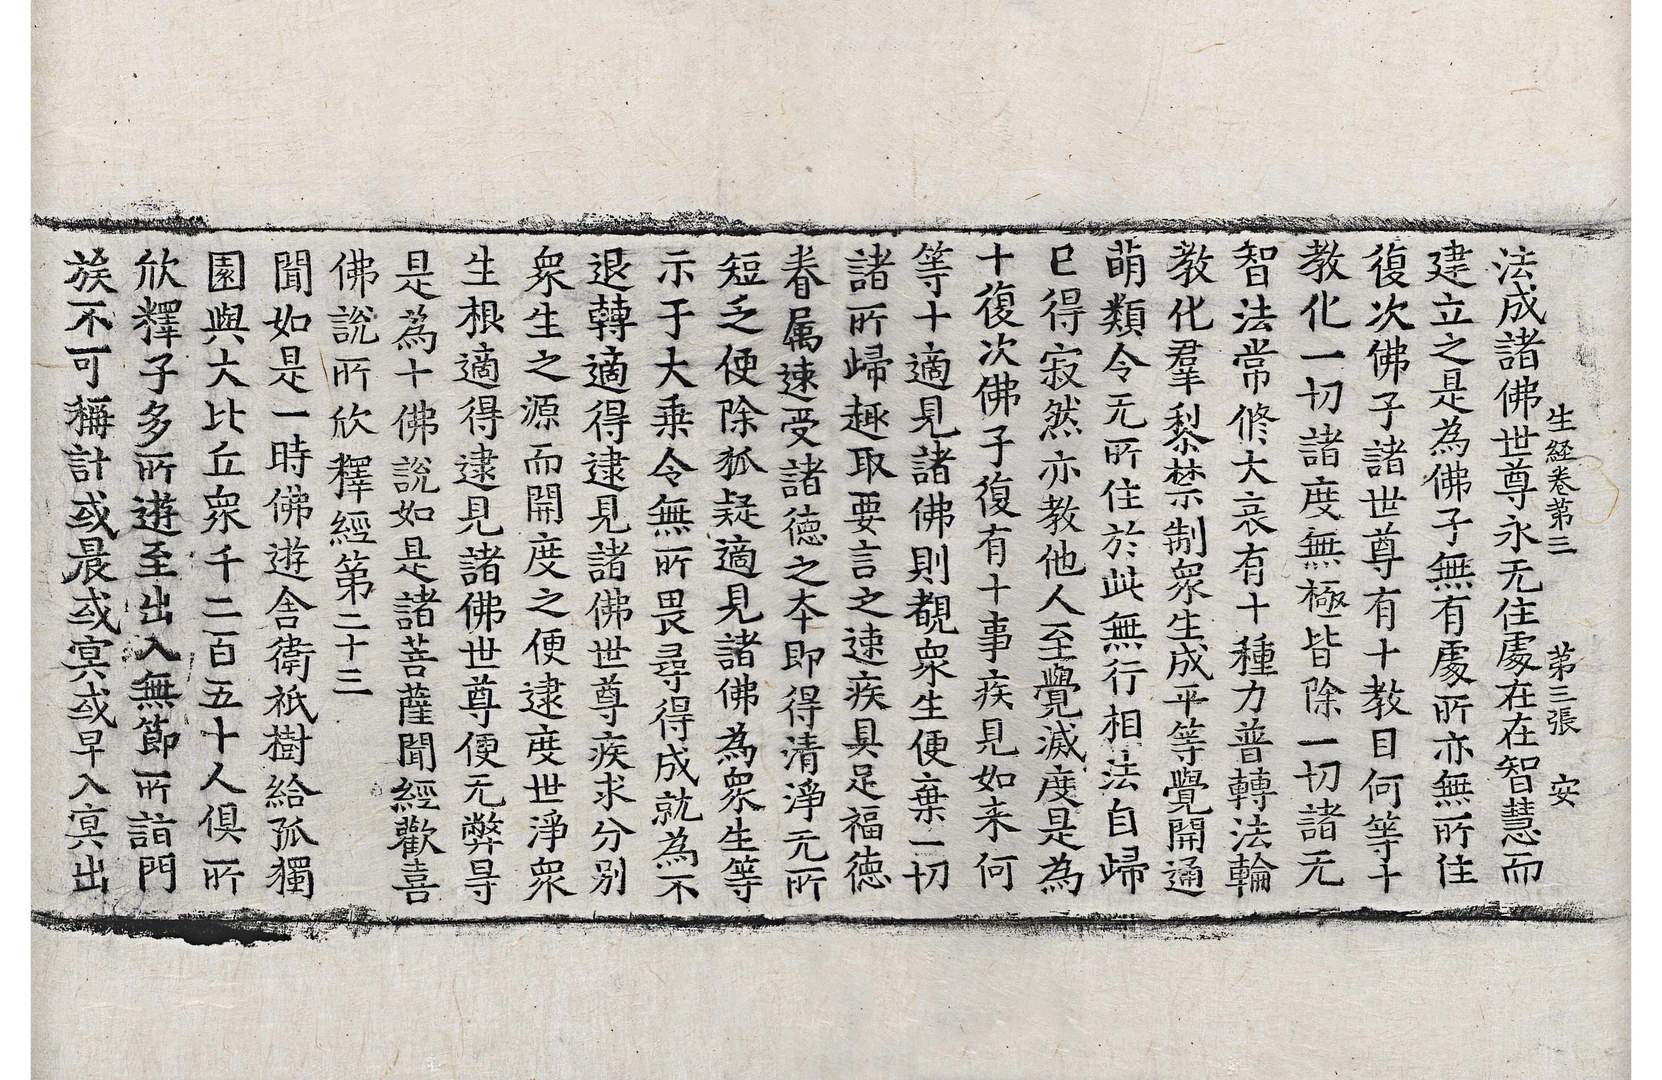 生經卷第三　第三張　安
法成諸佛世尊永无住處在在智慧而
建立之是為佛子無有處所亦無所住
復次佛子諸世尊有十教目何等十
教化一切諸度無極皆除一切諸无
智法常修大哀有十種力普轉法輪
教化羣黎禁制衆生成平等覺開通
萌類令无所住於此無行相法自歸
已得寂然亦教他人至覺滅度是為
十復次佛子復有十事疾見如来何
等十適見諸佛則覩衆生便棄一切
諸所歸趣取要言之速疾具足福德
眷属速受諸德之本即得清淨无所
短乏便除狐疑適見諸佛為衆生等
示于大乗令無所畏尋得成就為不
退轉適得逮見諸佛世尊疾求分别
衆生之源而開度之便逮度世淨衆
生根適得逮見諸佛世尊便无弊㝵
是為十佛說如是諸菩薩聞經歡喜
佛說所欣釋經第二十三
聞如是一時佛遊舍衛祇樹給孤獨
園與大比丘衆千二百五十人俱所
欣釋子多所遊至出入無節所詣門
族不可稱計或晨或冥或早入冥出